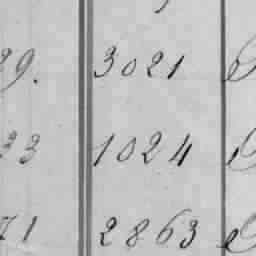 29. 3021
33 1024
71 2863